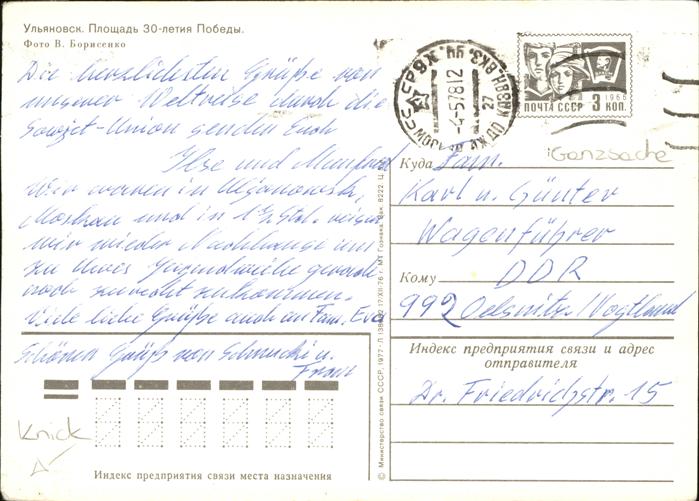 Ульяновск. Площадь 30-летия Победы.
Фото В. Борисенко
Die herzlichsten Grüße von
unserer Weltreise durch die
Sowjet-Union senden Euch
Ilse und Manfred
Wir waren in Uljanowsk,
Moskau und in 1 Std. neigen
wir wieder Nachhause um
zu Jugendweihe gerade
noch zurecht zukommen.
Viele liebe Grüße auch an Fam.
Schönen Gruß von u.
Frau
Knick
Индекс предприятия связи места назначения
© Министерство связи СССР, 1977
МТ Гознака. Зак. 8222. Ц.
СССР
МОСКВА
-4-5.78 12
27
ПОЧТА СССР 3 КОП.
1966
Ganzsache
Куда Fam.
Karl u. Günter
Wagenführer
Кому DDR
992 Oelsnitz/Vogtland
Индекс предприятия связи и адрес
отправителя
Dr. Friedrichstr. 15